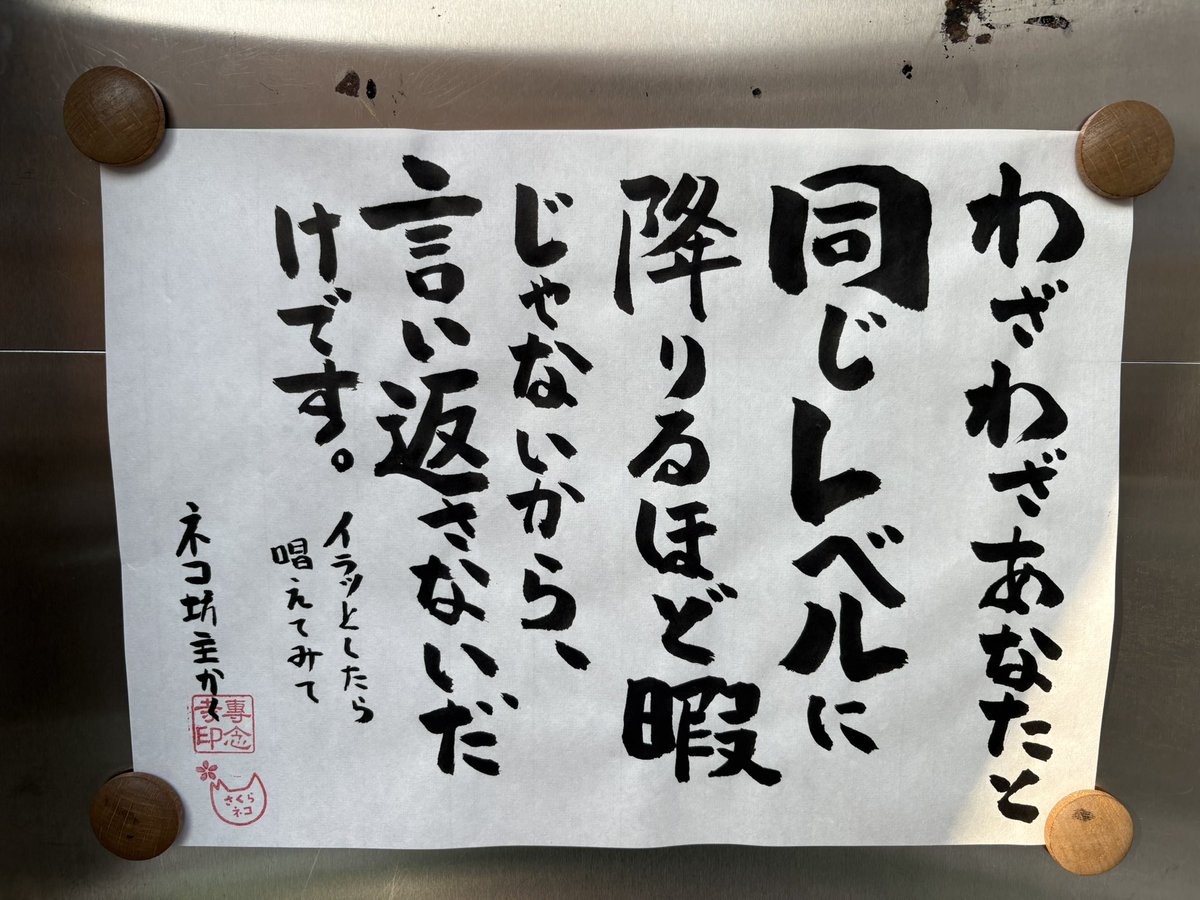 わざわざあなたと
同じレベルに
降りるほど暇
じゃないから、
言い返さないだ
けです。
イラッとしたら
唱えてみて
ネコ坊主かく
專念
寺印
さくら
ネコ